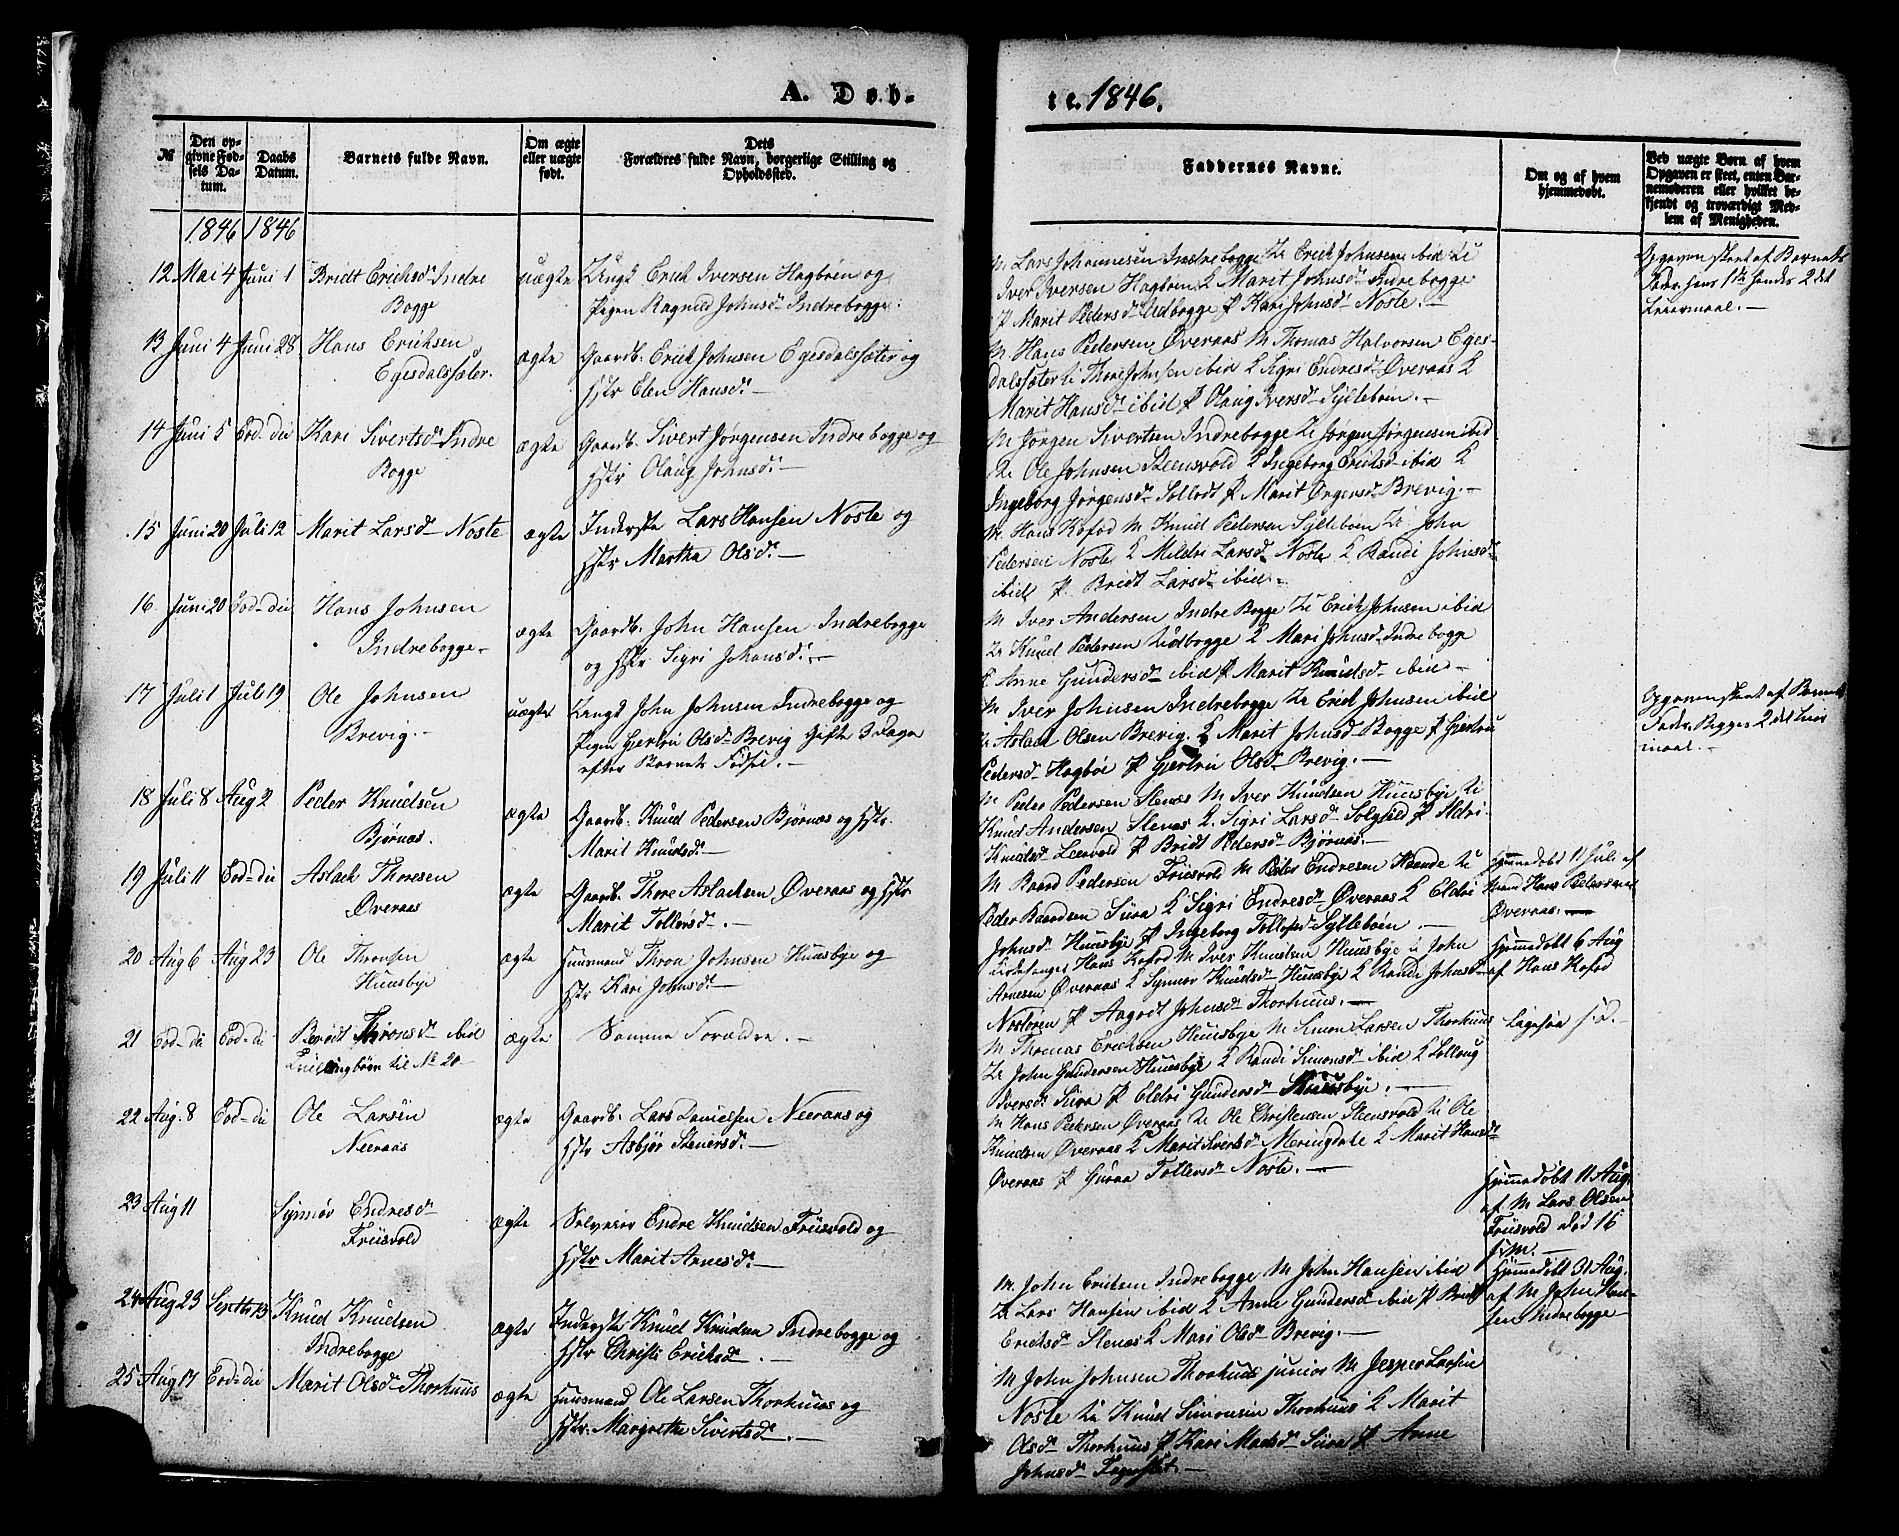 A. Døb-
te. 1846.
№
Den op-
givne Fød-
sels Da-
tum.
Daabs
Datum.
Barnets fulde Navn.
Om ægte
eller uægte
født.
Dets
Forældres fulde Navn, borgerlige Stilling og
Opholdssted.
Faddernes Navne.
Om og af hvem
hjemmedøbt.
Ved uægte Børn af hvem
Opgaven er skeet, enten Bar-
nemoderen eller hvilket be-
kjendt og troværdigt Med-
lem af Menigheden.
1846 1846
12 Mai 4 Juni 1 Bridt Erichsd. Indre
Bogge
uægte
Ungk Erich Iversen Hagbøen og
Pigen Ragnild Johnsd. Indrebogge.
M Lars Johannesen Indrebogge U Erich Johnsen ibid U
Iver Iversen Hagbøen K Marit Johnsd. Indrebogge
P Marit Pedersd. Udbogge P Kari Johnsd. Noste.
Opgaven skeet af Barnets
Fader, hans 1te hendes 2det
Leiermaal.
13 Juni 4 Juni 28 Hans Erichsen
Egesdalssæter.
ægte
Gaardb. Erich Johnsen Egesdalssæter og
Hstr Elen Hansd.
M Hans Pedersen Øveraas M Thomas Halvorsen Eges-
dalssæter U Thore Johnsen ibid K Sigri Endresd. Øveraas K
Marit Hansd. ibid P Olaug Iversd. Syltebøen.
14 Juni 5 Eod-die Kari Sivertsd. Indre
Bogge
ægte
Gaardb. Sivert Jørgensen Indrebogge og
Hstr Olaug Johnsd.
M Jørgen Sivertsen Indrebogge U Jørgen Jørgensen ibid
U Ole Johnsen Steensvold K Ingeborg Erichsd. ibid K
Ingeborg Jørgensd. P Marit Brevig.
15 Juni 20 Juli 12 Marit Larsd. Noste
ægte
Inderste Lars Hansen Noste og
Hstr Martha Olsd.
M. Hans Kofod M Knud Pedersen Syltebøen U John
Pedersen Noste K Mildri Larsd. Noste K Randi Johnsd.
ibid P Bridt Larsd. ibid.
16. Juni 20 Eod-die Hans Johnsen
Indrebogge
ægte
Gaardb. John Hansen Indrebogge
og Hstr Sigri Johansd.
M Iver Andersen Indre Bogge U Erich Johnsen ibid
U Knud Pedersen Udbogge K Mari Johnsd. Indrebogge
K Anne Gundersd. ibid P Marit Knudsd. ibid
17 Juli 1 Juli 19 Ole Johnsen
Brevig.
uægte
Ungk John Johnsen Indrebogge og
Pigen Gjertru Olsd. Brevig Gifte 3 Dage
efter Barnets Fødsel.
M Iver Johnsen Indrebogge U Erich Johnsen ibid
U Aslach Olsen Brevig. K Marit Johnsd. Bogge P Gjertru
Pedersd. Hagbøe P Gjertru Olsd. Brevig.
Opgaven skeet af Barnets
Fader. Begges 2det Leier-
maal.
18 Juli 8 Aug 2 Peder Knudsen
Bjørnas.
ægte
Gaardb. Knud Pedersen Bjørnæs og Hstr.
Marit Knudsd.
M Peder Pedersen Stenæs M Iver Knudsen Huusbye U
Knud Andersen Stenæs K. Sigri Larsd. P Sldri
Knudsd. P Bridt Pedersd. Bjørnæs.
19 Juli 11 Eod-die Aslach Thoresen
Øveraas
ægte
Gaardb. Thore Aslachsen Øveraas og Hstr
Marit Tollefsd.
M Baard Pedersen Friisvold M Peder Endresen U
Peder Baardsen Sira K Sigri Endresd. Øveraas K Eldri
Johnsd. Huusbye P Ingeborg Tollefsd. Syltebøen.
Hjemmedøbt 11 Juli af
Hans Pedersen
Øveraas.
20 Aug 6 Aug 23 Ole Thronsen
Huusbye
ægte
Huusmand Thron Johnsen Huusbye og
Hstr Kari Johnsd.
Kirkesanger Hans Kofod M Iver Knudsen Huusbye U John
Arnesen Øveraas K Synnøv Knudsd. Huusbye K Randi Johnsd.
P Aagodt Johnsd. Thorhuus.
Hjemmedøbt 6 Aug
af Hans Kofod
21 Eod-di Eod-di Berødt Thronsd. ibid
Tvillingbørn til № 20
ægte
Samme Forældre.
M Thomas Erichsen Huusbye M Simon Larsen Thorhuus
U John Gundersen Huusbye K Randi Simonsd. ibid K
Iversd. Sira P Eldri Gundersd. Huusbye.
Ligesaa
22 Aug. 8 Eod-die Ole Larsen
Neeraas
ægte
Gaardb. Lars Danielsen Neeraas og
Hstr Asbjør Stenersd.
M Hans Pedersen Øveraas U Ole Christensen Steensvold U Ole
Knudsen Øveraas K Marit Sivertsd. Meringdale K Marit Hansd.
Øveraas P Guraa Tollefsd. Noste.
23 Aug 11 Synnøv Endresd.
Friisvold
ægte
Selveier Endre Knudsen Friisvold og
Hstr Marit Arnesd.
Hjemmedøbt 11 Aug.
af M Lars Olsen
Friisvold død 16
s. M.
24 Aug 23 Septbr 13 Knud Knudsen
Indrebogge
ægte
Inderste Knud Knudsen Indrebogge og
Hstr Christi Erichsd.
M. John Erichsen Indrebogge M John Hansen ibid
U Lars Hansen ibid K Anne Gundersd. ibid P Bridt
Erichsd. Stenæs K Mari Olsd. Brevig.
Hjemmedøbt 31 Aug.
af M John Han-
sen Indrebogge
25 Aug 17 Eod-die Marit Olsd. Thorhuus
ægte
Huusmand Ole Larsen Thorhuus og
Hstr. Margrethe Sivertsd.
M John Johnsen Thorhuus junior M Jesper Larsen
Noste U Knud Simonsen Thorhuus K Marit
Olsd. Thorhuus P Kari Madsd. Sira P Anne
Johnsd.